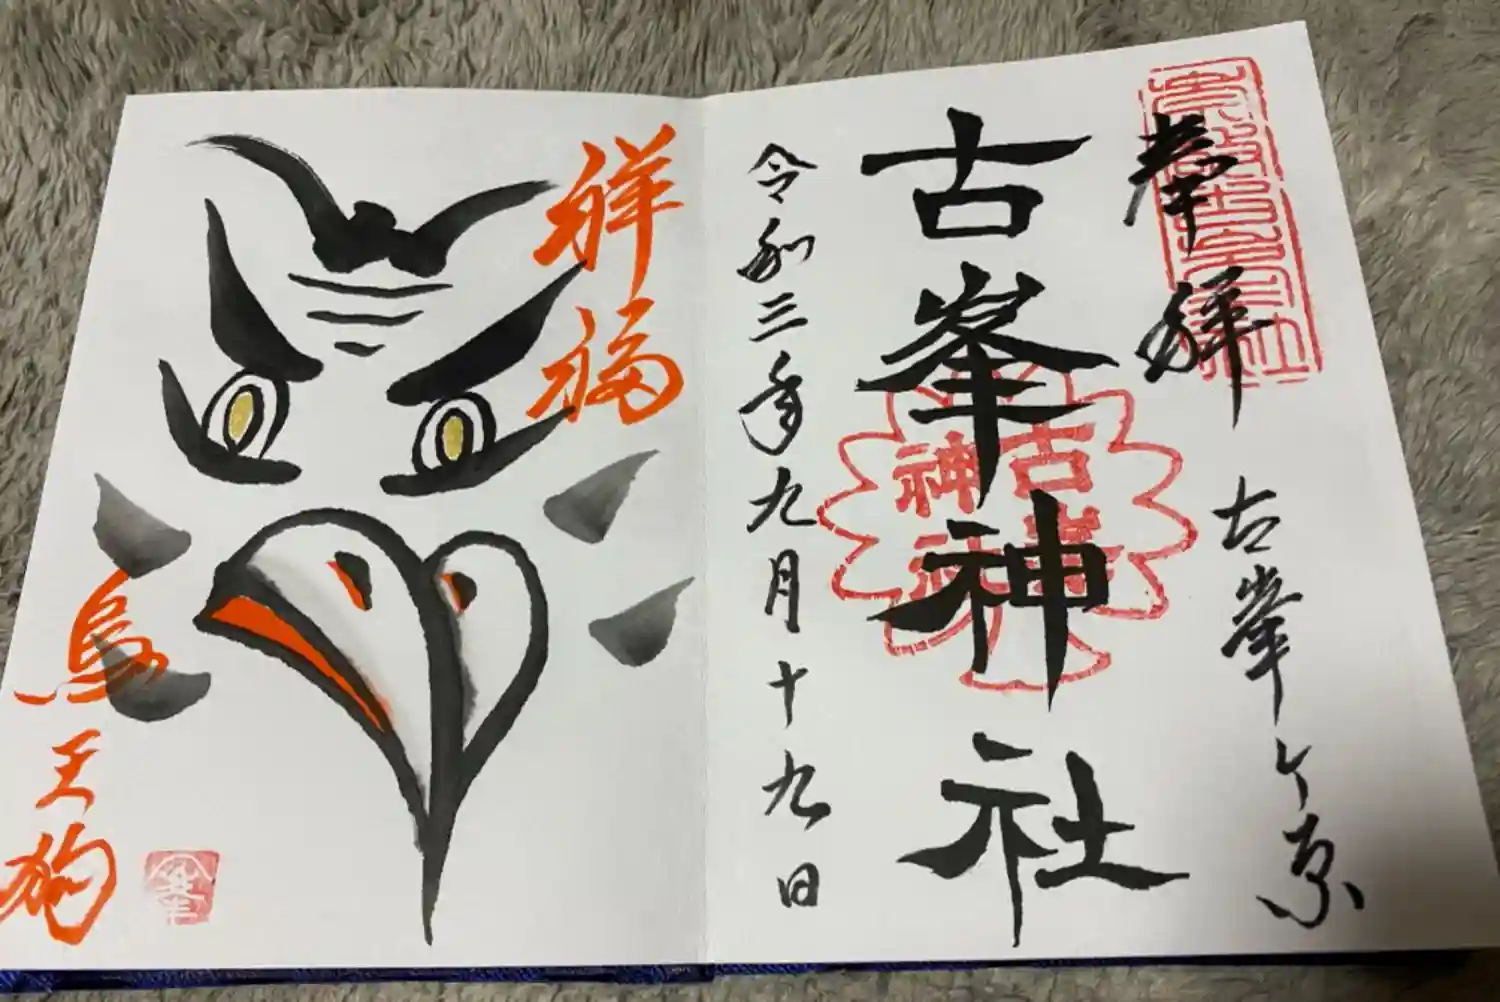 奉拝
古峯ヶ原
古峯神社
古峯神社
令和三年九月十九日
祥福
烏天狗